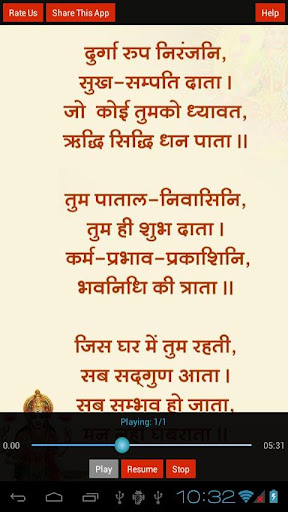 Rate Us Share This App Help
दुर्गा रुप निरंजनि,
सुख-सम्पति दाता ।
जो कोई तुमको ध्यावत,
ऋद्धि सिद्धि धन पाता ॥
तुम पाताल-निवासिनि,
तुम ही शुभ दाता ।
कर्म-प्रभाव-प्रकाशिनि,
भवनिधि की त्राता ॥
जिस घर में तुम रहती,
सब सद्‍गुण आता ।
सब सम्भव हो जाता,
मन नहीं घबराता ॥
Playing: 1/1
0.00 05:31
Play Resume Stop
10:32